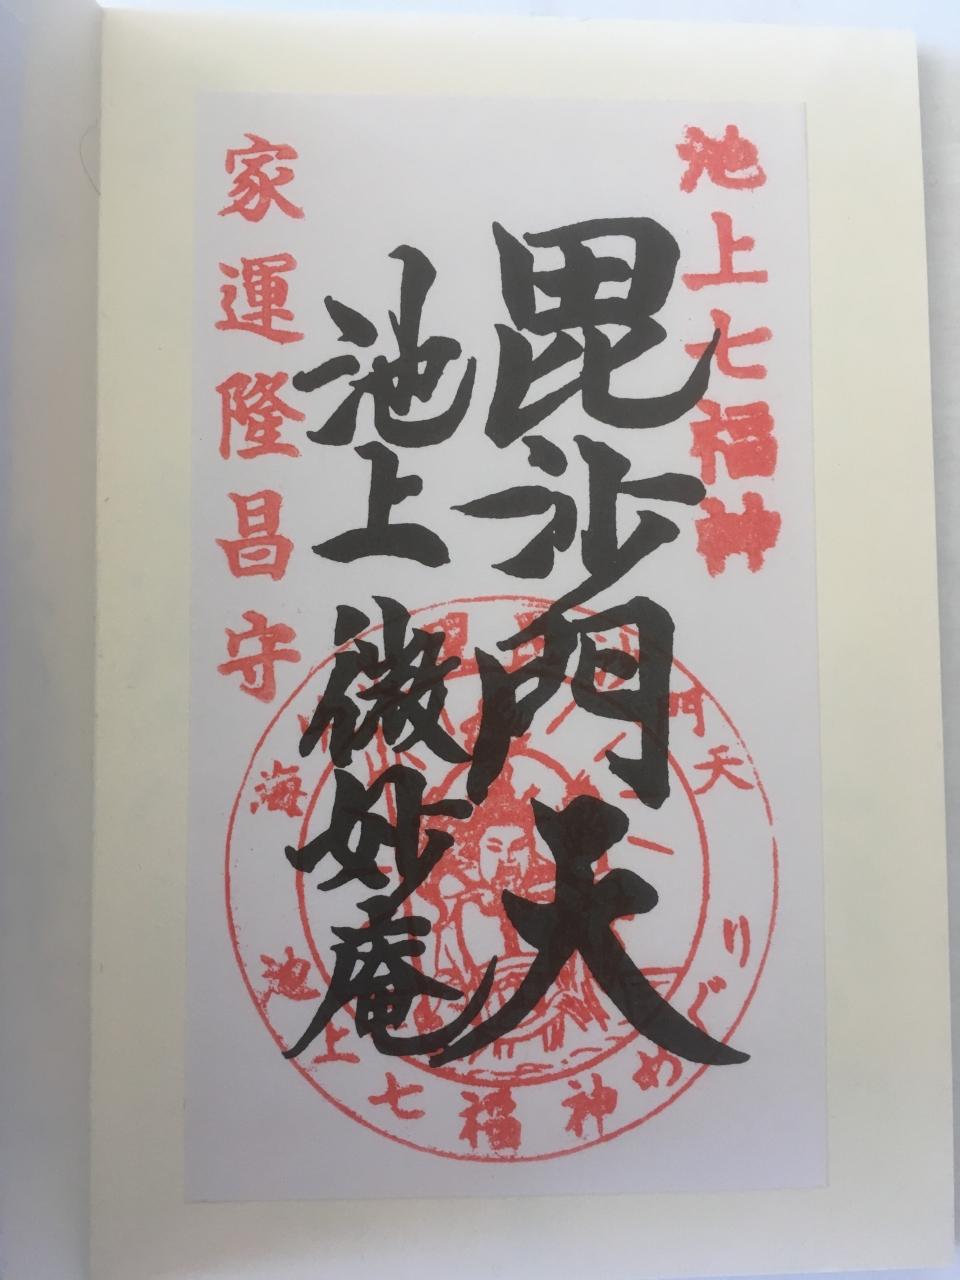 池上七福神
毘沙門天
池上 微妙庵
家運隆昌守
門天
海
池上七福神めぐり